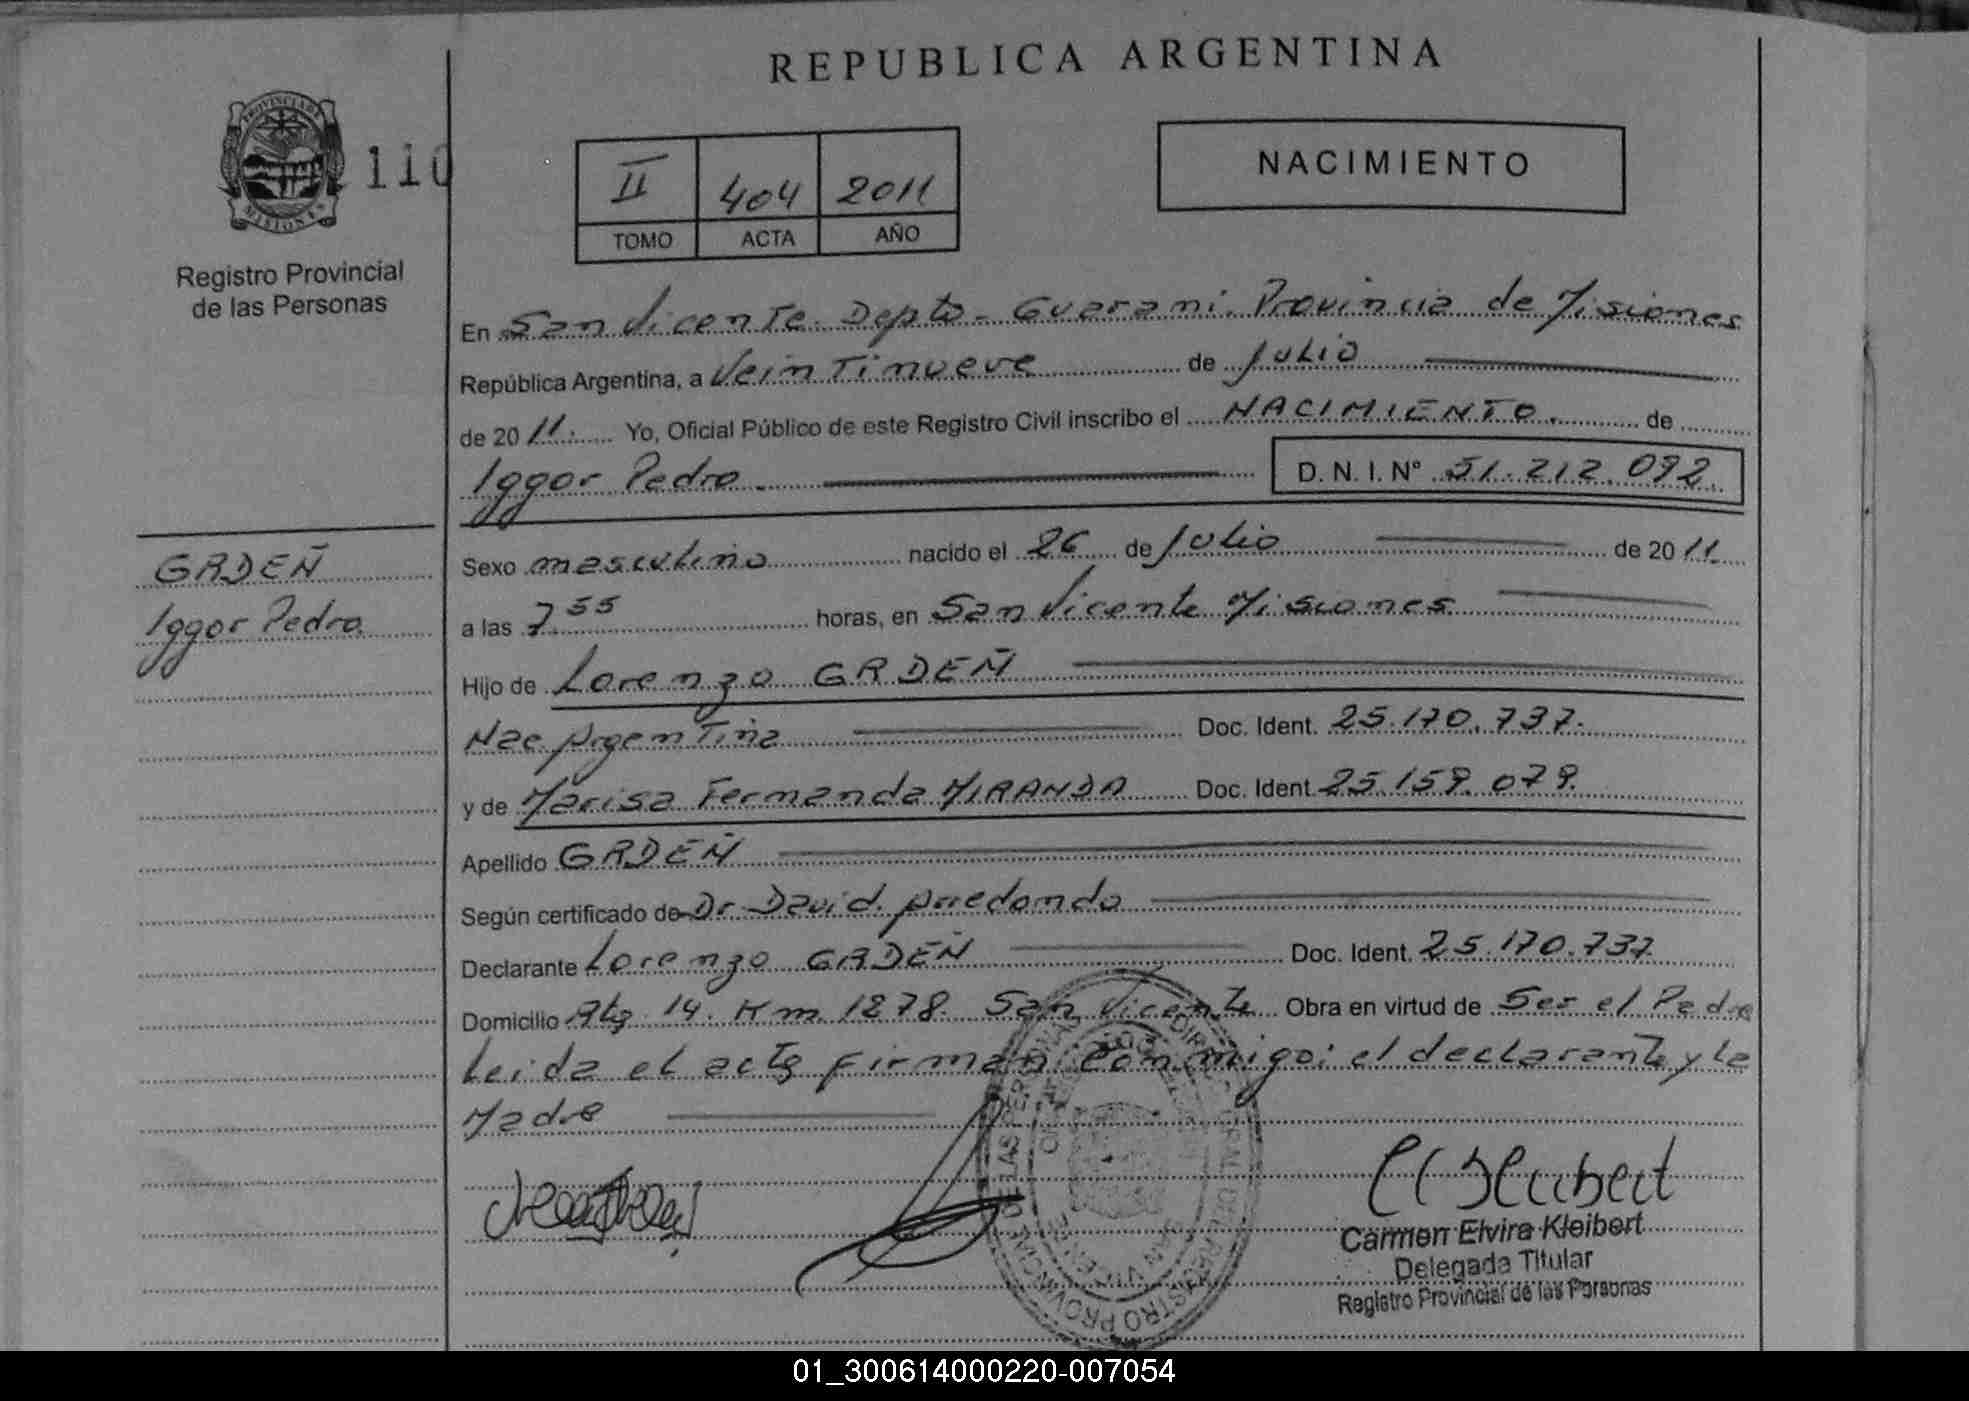 REPUBLICA ARGENTINA
PROVINCIA DE
MISIONES
110
Registro Provincial
de las Personas
II 404 2011
TOMO ACTA AÑO
NACIMIENTO
En San Vicente Depto - Guarani. Provincia de Misiones
República Argentina, a Veintinueve de Julio
de 2011. Yo, Oficial Público de este Registro Civil inscribo el NACIMIENTO. de
Iggor Pedro. D. N. I. N° 51.212.092.
GRDEÑ
Iggor Pedro
Sexo masculino nacido el 26 de Julio de 2011.
a las 7 55 horas, en San Vicente Misiones
Hijo de Lorenzo GRDEÑ
Nac Argentina Doc. Ident. 25.170.737.
y de Marisa Fernanda MIRANDA Doc. Ident. 25.159.079.
Apellido GRDEÑ
Según certificado de Dr David Arredondo
Declarante Lorenzo GRDEÑ Doc. Ident. 25.170.737
Domicilio Rta 14. Km 1278. San Vicente Obra en virtud de Ser el Padre
Leida el acta firman conmigo: el declarante y la
Madre
Carmen Elvira Kleibert
Delegada Titular
Registro Provincial de las Personas
01_300614000220-007054